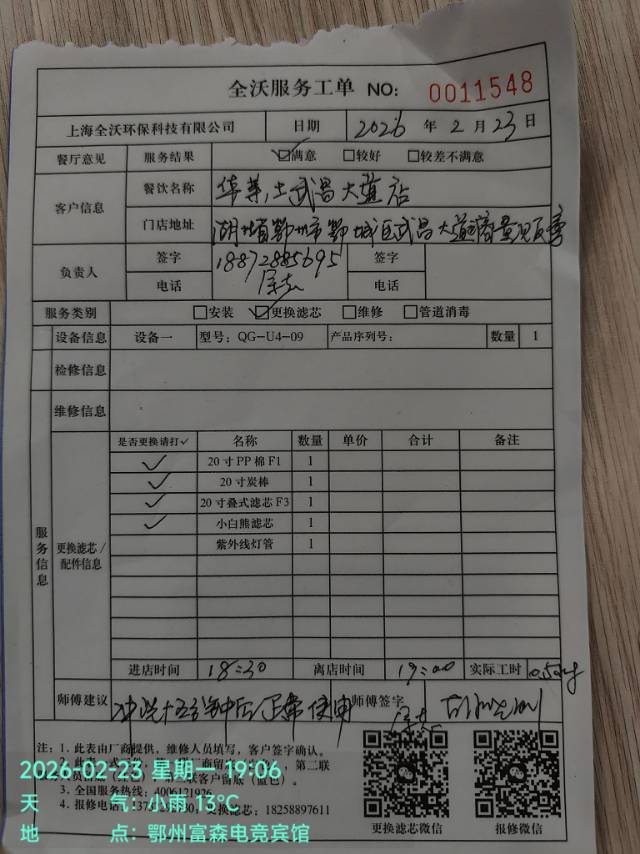 全沃服务工单 NO: 0011548
上海全沃环保科技有限公司 日期 2026 年 2 月 23 日
餐厅意见 服务结果 ☑满意 □较好 □较差不满意
客户信息 餐饮名称 华莱士武昌大道店
门店地址 湖北省鄂州市鄂城区武昌大道
负责人 签字 18872885695 签字
电话 电话
服务类别 □安装 ☑更换滤芯 □维修 □管道消毒
设备信息 设备一 型号: QG-U4-09 产品序列号: 数量 1
检修信息
维修信息
服务信息 更换滤芯/配件信息
是否更换请打✓ 名称 数量 单价 合计 备注
✓ 20寸PP棉F1 1
✓ 20寸炭棒 1
✓ 20寸叠式滤芯F3 1
✓ 小白熊滤芯 1
紫外线灯管 1
进店时间 18:30 离店时间 19:00 实际工时
师傅建议 冲洗十五分钟后正常使用 师傅签字
注: 1. 此表由厂商提供，维修人员填写，客户签字确认。
第二联
3. 全国服务热线: 4006121926
更换滤芯: 18258897611
4. 报修电话
更换滤芯微信 报修微信
2026-02-23 星期一 19:06
天 气: 小雨 13℃
地 点: 鄂州富森电竞宾馆